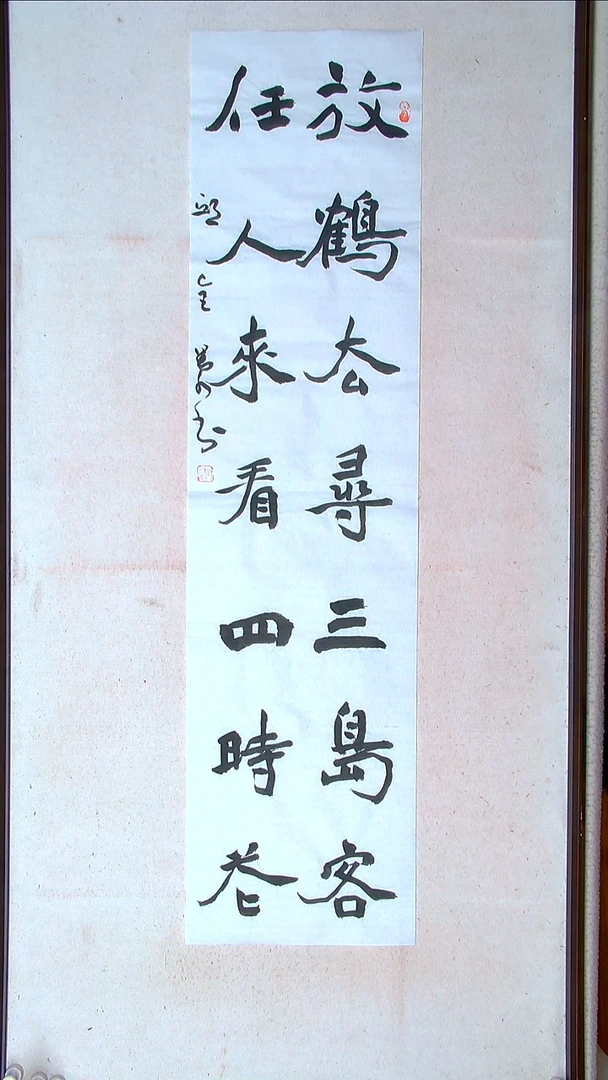 放鶴去尋三島客
任人來看四時花